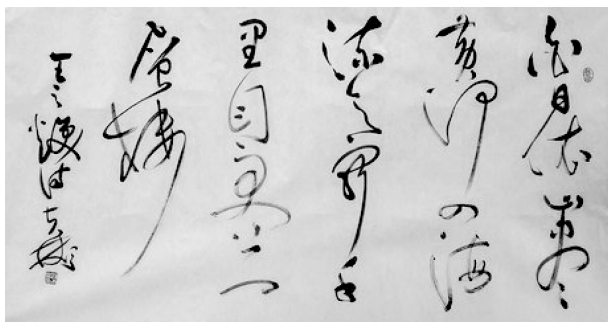 白日依山尽
黄河入海
流欲窮千
里目更上一
層樓
王之渙诗